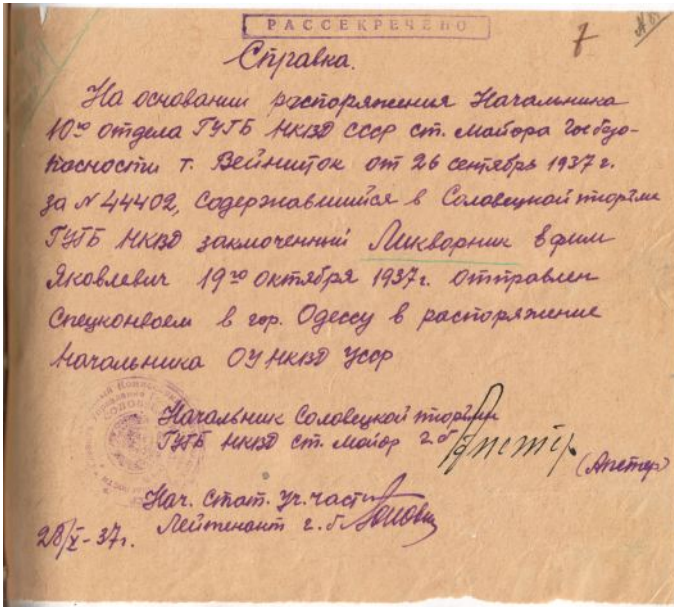 РАССЕКРЕЧЕНО
7
Справка.
На основании распоряжения Начальника
10го отдела ГУГБ НКВД СССР ст. майора Госбезо-
пасности т. Вейншток от 26 сентябрь 1937 г.
за N 44402, содержавшийся в Соловецкой тюрьме
ГУГБ НКВД заключенный Ликворник Эфим
Яковлевич 19го октября 1937 г. отправлен
Спецконвоем в гор. Одессу в распоряжение
Начальника ОУ НКВД УССР
Начальник Соловецкой тюрьмы
ГУГБ НКВД ст. майор г.б. Апетер
(Апетер)
Нач. Стат. Уч. части
Лейтенант г. б.
28/X-37г.